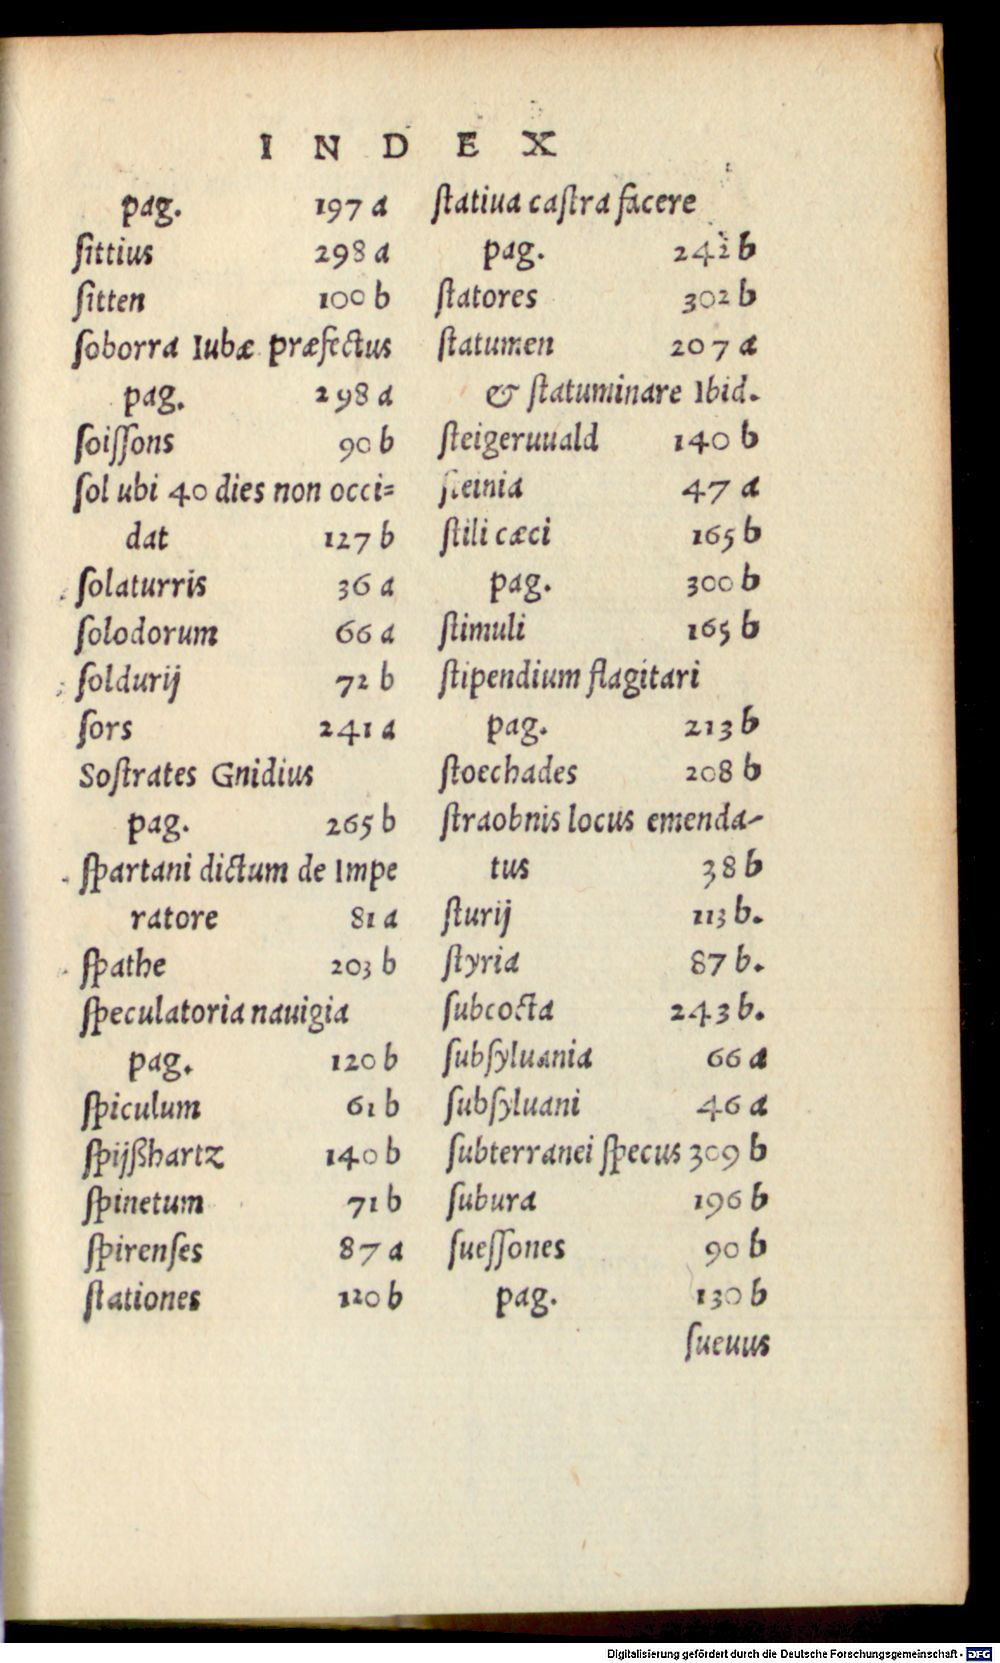 INDEX
pag. 197 a
ſittius 298 a
ſitten 100 b
ſoborra Iubæ præfectus
pag. 298 a
ſoiſſons 90 b
ſol ubi 40 dies non occi=
dat 127 b
ſolaturris 36 a
ſolodorum 66 a
ſoldurij 72 b
ſors 241 a
Soſtrates Gnidius
pag. 265 b
ſpartani dictum de Impe
ratore 81 a
ſpathe 203 b
ſpeculatoria nauigia
pag. 120 b
ſpiculum 61 b
ſpijßhartz 140 b
ſpinetum 71 b
ſpirenſes 87 a
ſtationes 120 b
ſtatiua caſtra facere
pag. 242 b
ſtatores 302 b
ſtatumen 207 a
& ſtatuminare Ibid.
ſteigeruuald 140 b
ſteinia 47 a
ſtili cæci 165 b
pag. 300 b
ſtimuli 165 b
ſtipendium flagitari
pag. 213 b
ſtoechades 208 b
ſtraobnis locus emenda-
tus 38 b
ſturij 113 b.
ſtyria 87 b.
ſubcocta 243 b.
ſubſyluania 66 a
ſubſyluani 46 a
ſubterranei ſpecus 309 b
ſubura 196 b
ſueſſones 90 b
pag. 130 b
ſueuus
Digitalisierung gefördert durch die Deutsche Forschungsgemeinschaft - DFG